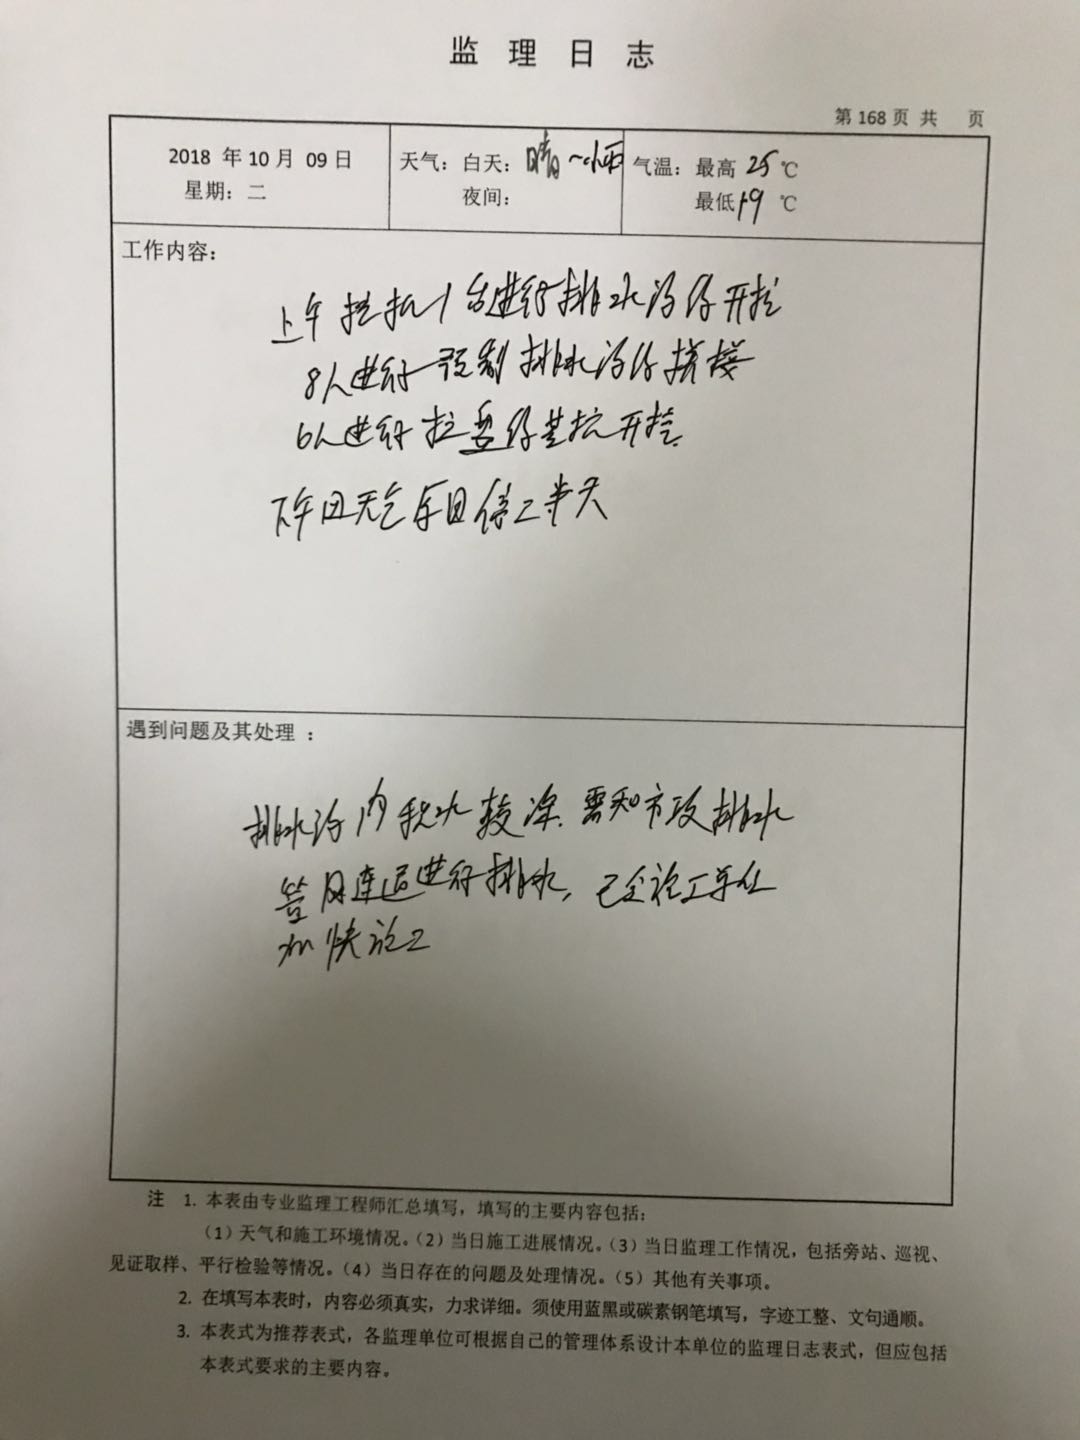 监 理 日 志
第 168 页 共 页
2018 年 10 月 09 日
星期：二
天气：白天：晴~小雨
夜间：
气温：最高 25 ℃
最低 19 ℃
工作内容：
上午挖机1台进行排水沟沟开挖
8人进行预制排水沟沟拼接
6人进行拉基坑开挖.
下午因天气原因停工半天
遇到问题及其处理 ：
排水沟内积水较深. 需和市政排水
管网连通进行排水, 已施工单位
加快施工
注 1. 本表由专业监理工程师汇总填写，填写的主要内容包括：
（1）天气和施工环境情况。（2）当日施工进展情况。（3）当日监理工作情况，包括旁站、巡视、
见证取样、平行检验等情况。（4）当日存在的问题及处理情况。（5）其他有关事项。
2. 在填写本表时，内容必须真实，力求详细。须使用蓝黑或碳素钢笔填写，字迹工整、文句通顺。
3. 本表式为推荐表式，各监理单位可根据自己的管理体系设计本单位的监理日志表式，但应包括
本表式要求的主要内容。